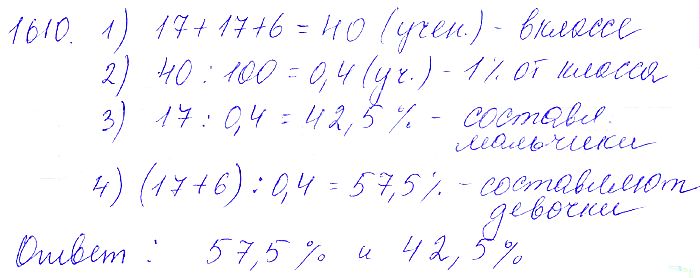 1610. 1) 17+17+6=40 (учен.) - в классе
2) 40 : 100 = 0,4 (уч.) - 1% от класса
3) 17 : 0,4 = 42,5 % - составл.
мальчики
4) (17+6) : 0,4 = 57,5% - составляют
девочки
Ответ : 57,5% и 42,5%